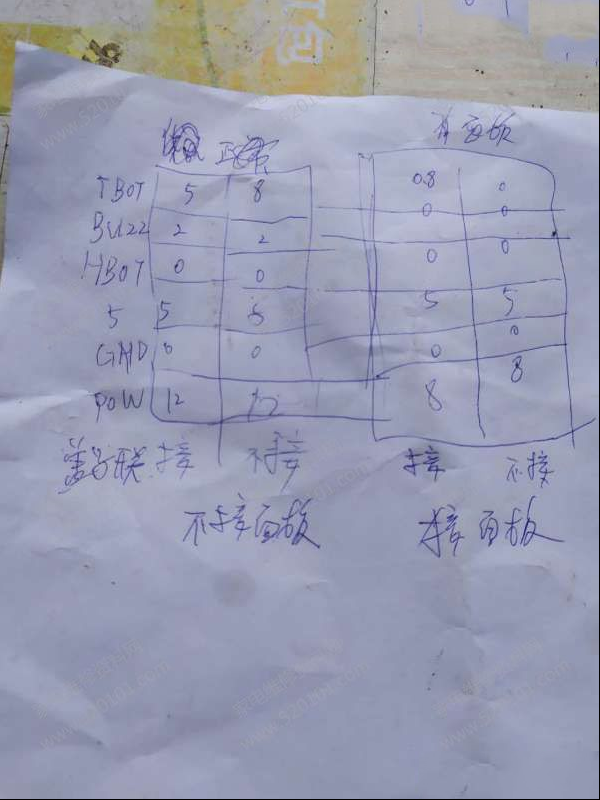 正常 有面板
TBOT 5 8 0.8 0
Buzz 2 2 0 0
HBOT 0 0 0 0
5 5 5 5 5
GND 0 0 0 0
POW 12 12 8 8
接 不接 接 不接
不接面板 接面板